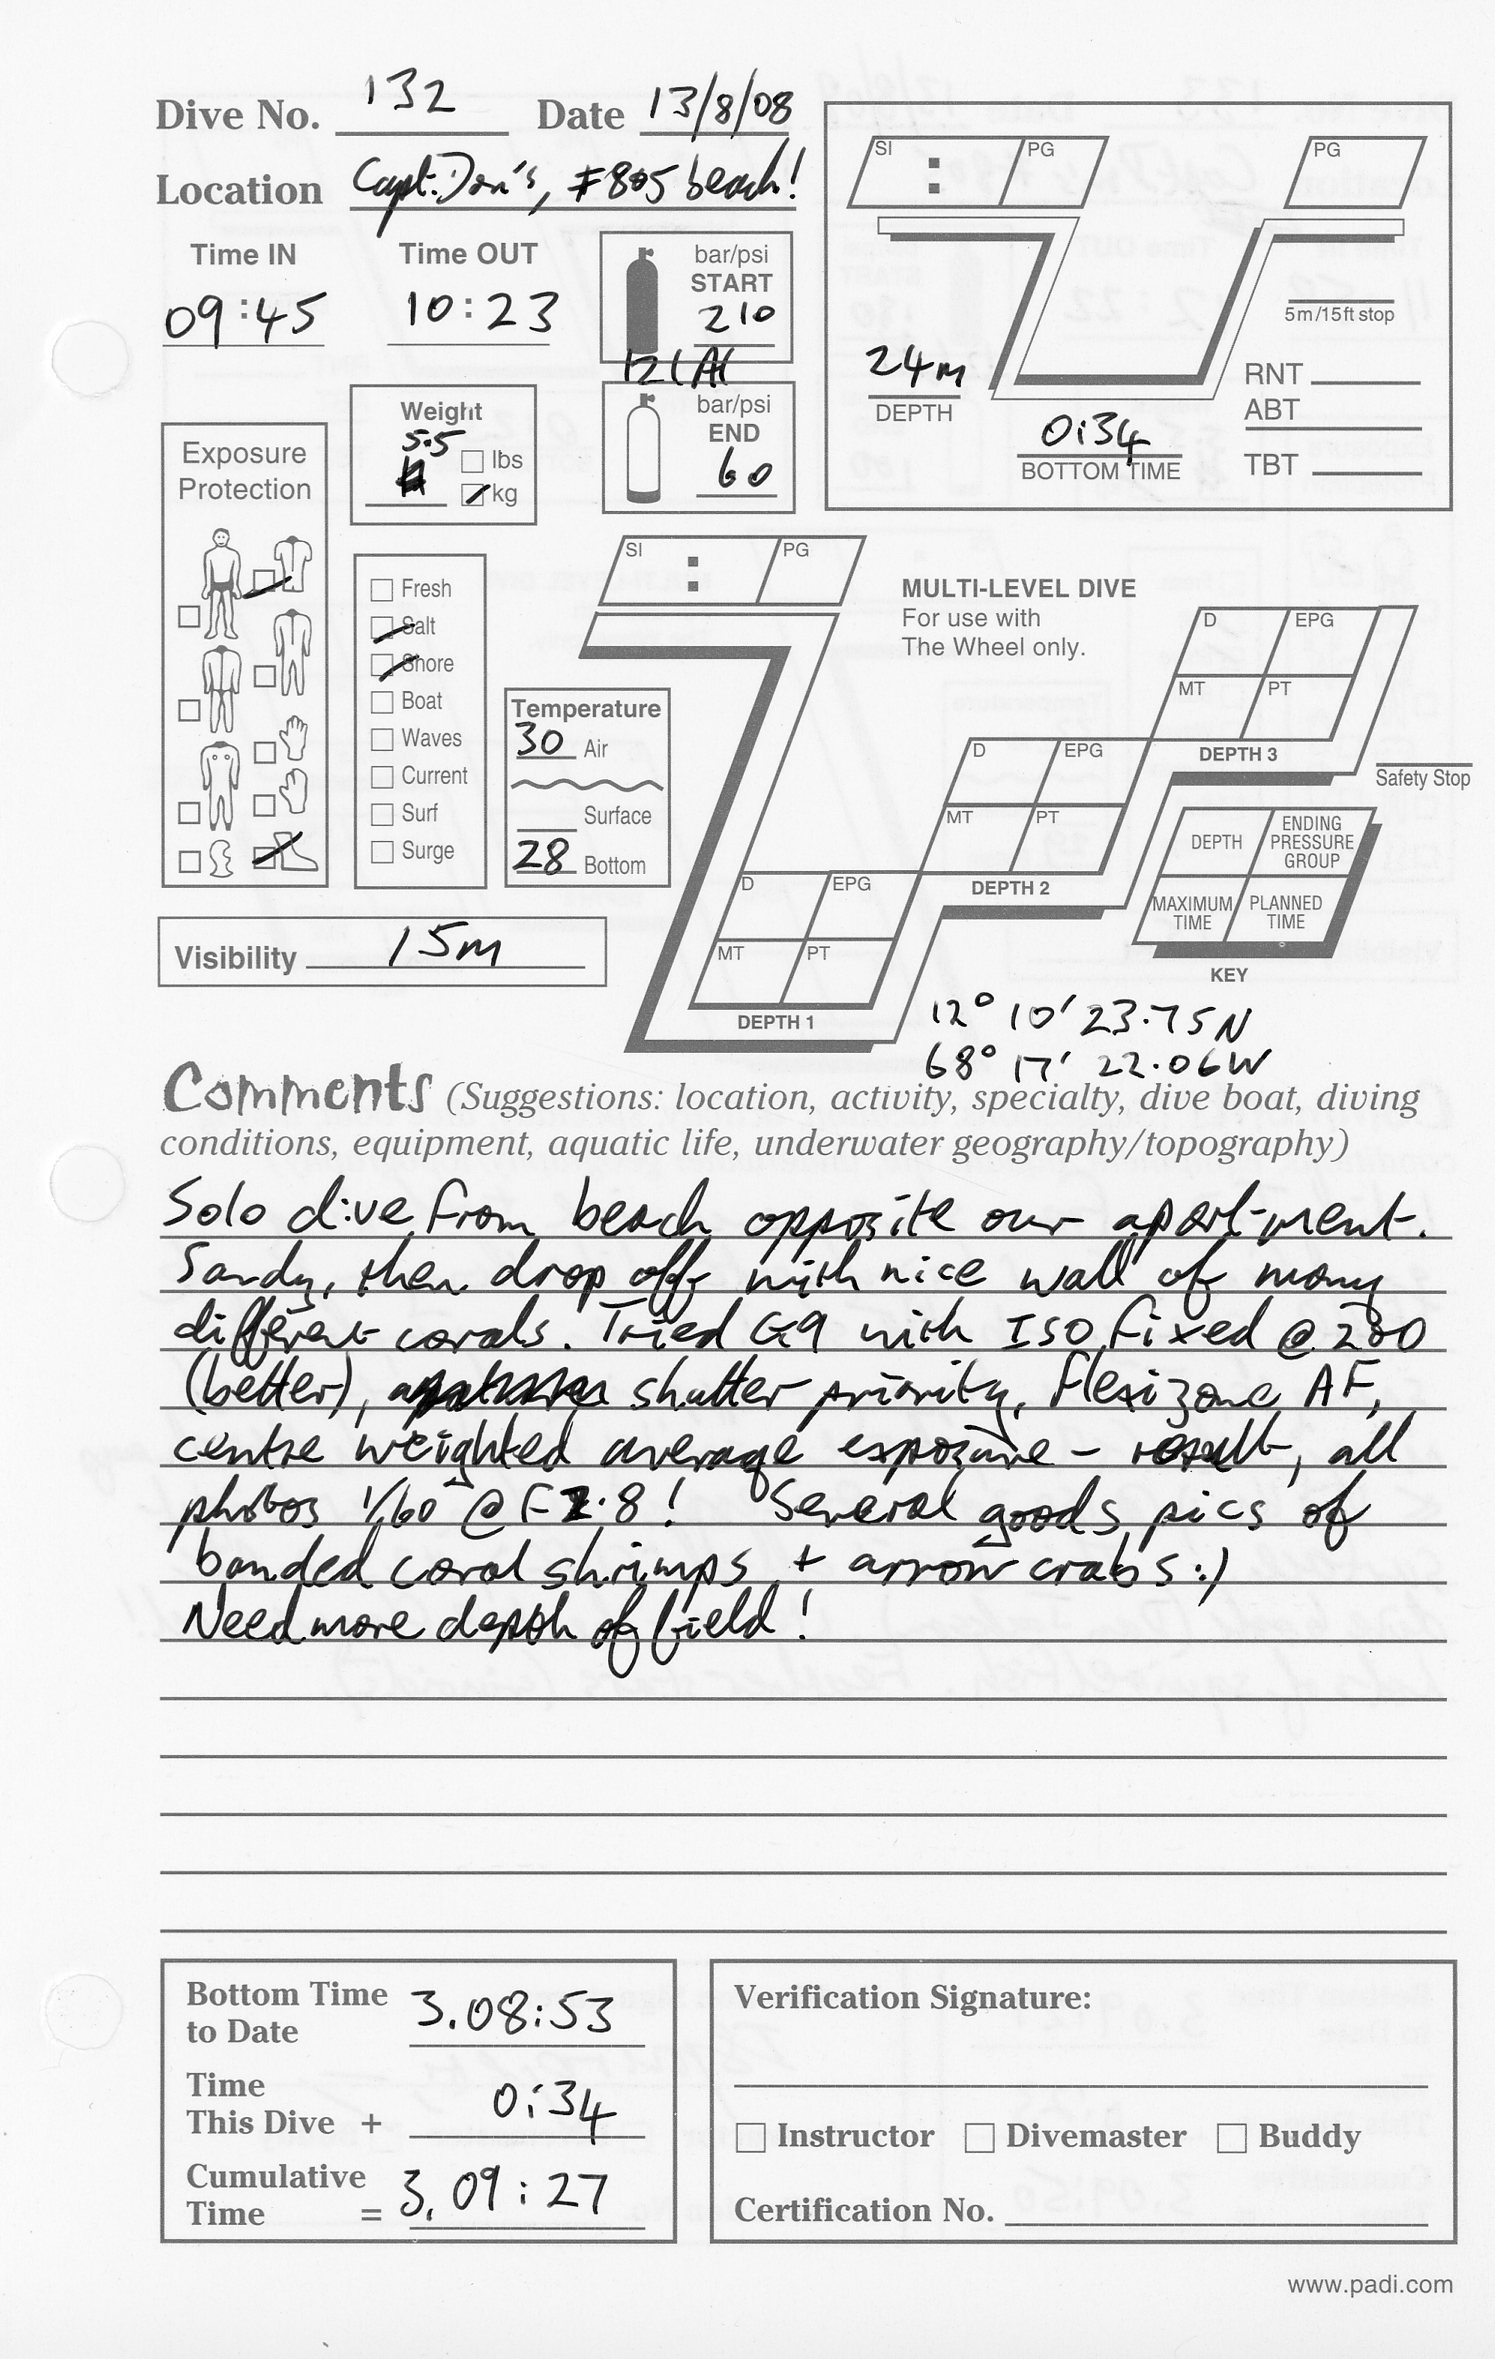 Dive No. 132 Date 13/8/08
Location Capt. Don's, #805 beach!
Time IN Time OUT
09:45 10:23
bar/psi
START
210
12l Al
bar/psi
END
60
Weight
5.5
lbs
kg
Exposure
Protection
Fresh
Salt
Shore
Boat
Waves
Current
Surf
Surge
Temperature
30 Air
Surface
28 Bottom
Visibility 15m
SI : PG
PG
5m/15ft stop
24m
DEPTH
0:34
BOTTOM TIME
RNT
ABT
TBT
SI : PG
MULTI-LEVEL DIVE
For use with
The Wheel only.
D EPG
MT PT
DEPTH 3
Safety Stop
D EPG
MT PT
DEPTH 2
D EPG
MT PT
DEPTH 1
DEPTH
ENDING
PRESSURE
GROUP
MAXIMUM
TIME
PLANNED
TIME
KEY
12° 10' 23.75N
68° 17' 22.06W
Comments (Suggestions: location, activity, specialty, dive boat, diving
conditions, equipment, aquatic life, underwater geography/topography)
Solo dive from beach opposite our apartment.
Sandy, then drop off with nice wall of many
different corals. Tried G9 with ISO fixed @ 200
(better), shutter priority, Flexizone AF,
centre weighted average exposure - result, all
photos 1/60 @ F2.8! Several goods pics of
banded coral shrimps + arrow crabs :)
Need more depth of field!
Bottom Time
to Date 3.08:53
Time
This Dive + 0:34
Cumulative
Time = 3.09:27
Verification Signature:
Instructor Divemaster Buddy
Certification No.
www.padi.com